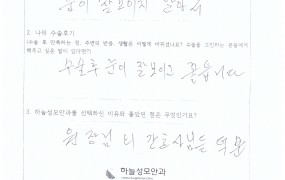 눈이 잘보이지 않아서
2. 나의 수술후기
(수술 후 만족하는 점, 주변의 반응, 생활은 어떻게 바뀌셨나요? 수술을 고민하는 분들에게
해주고 싶은 말이 있다면?)
수술후 눈이 잘보이고 좋습니다
3. 하늘성모안과를 선택하신 이유와 좋았던 점은 무엇인가요?
원장님 및 간호사님들 덕분
하늘성모안과